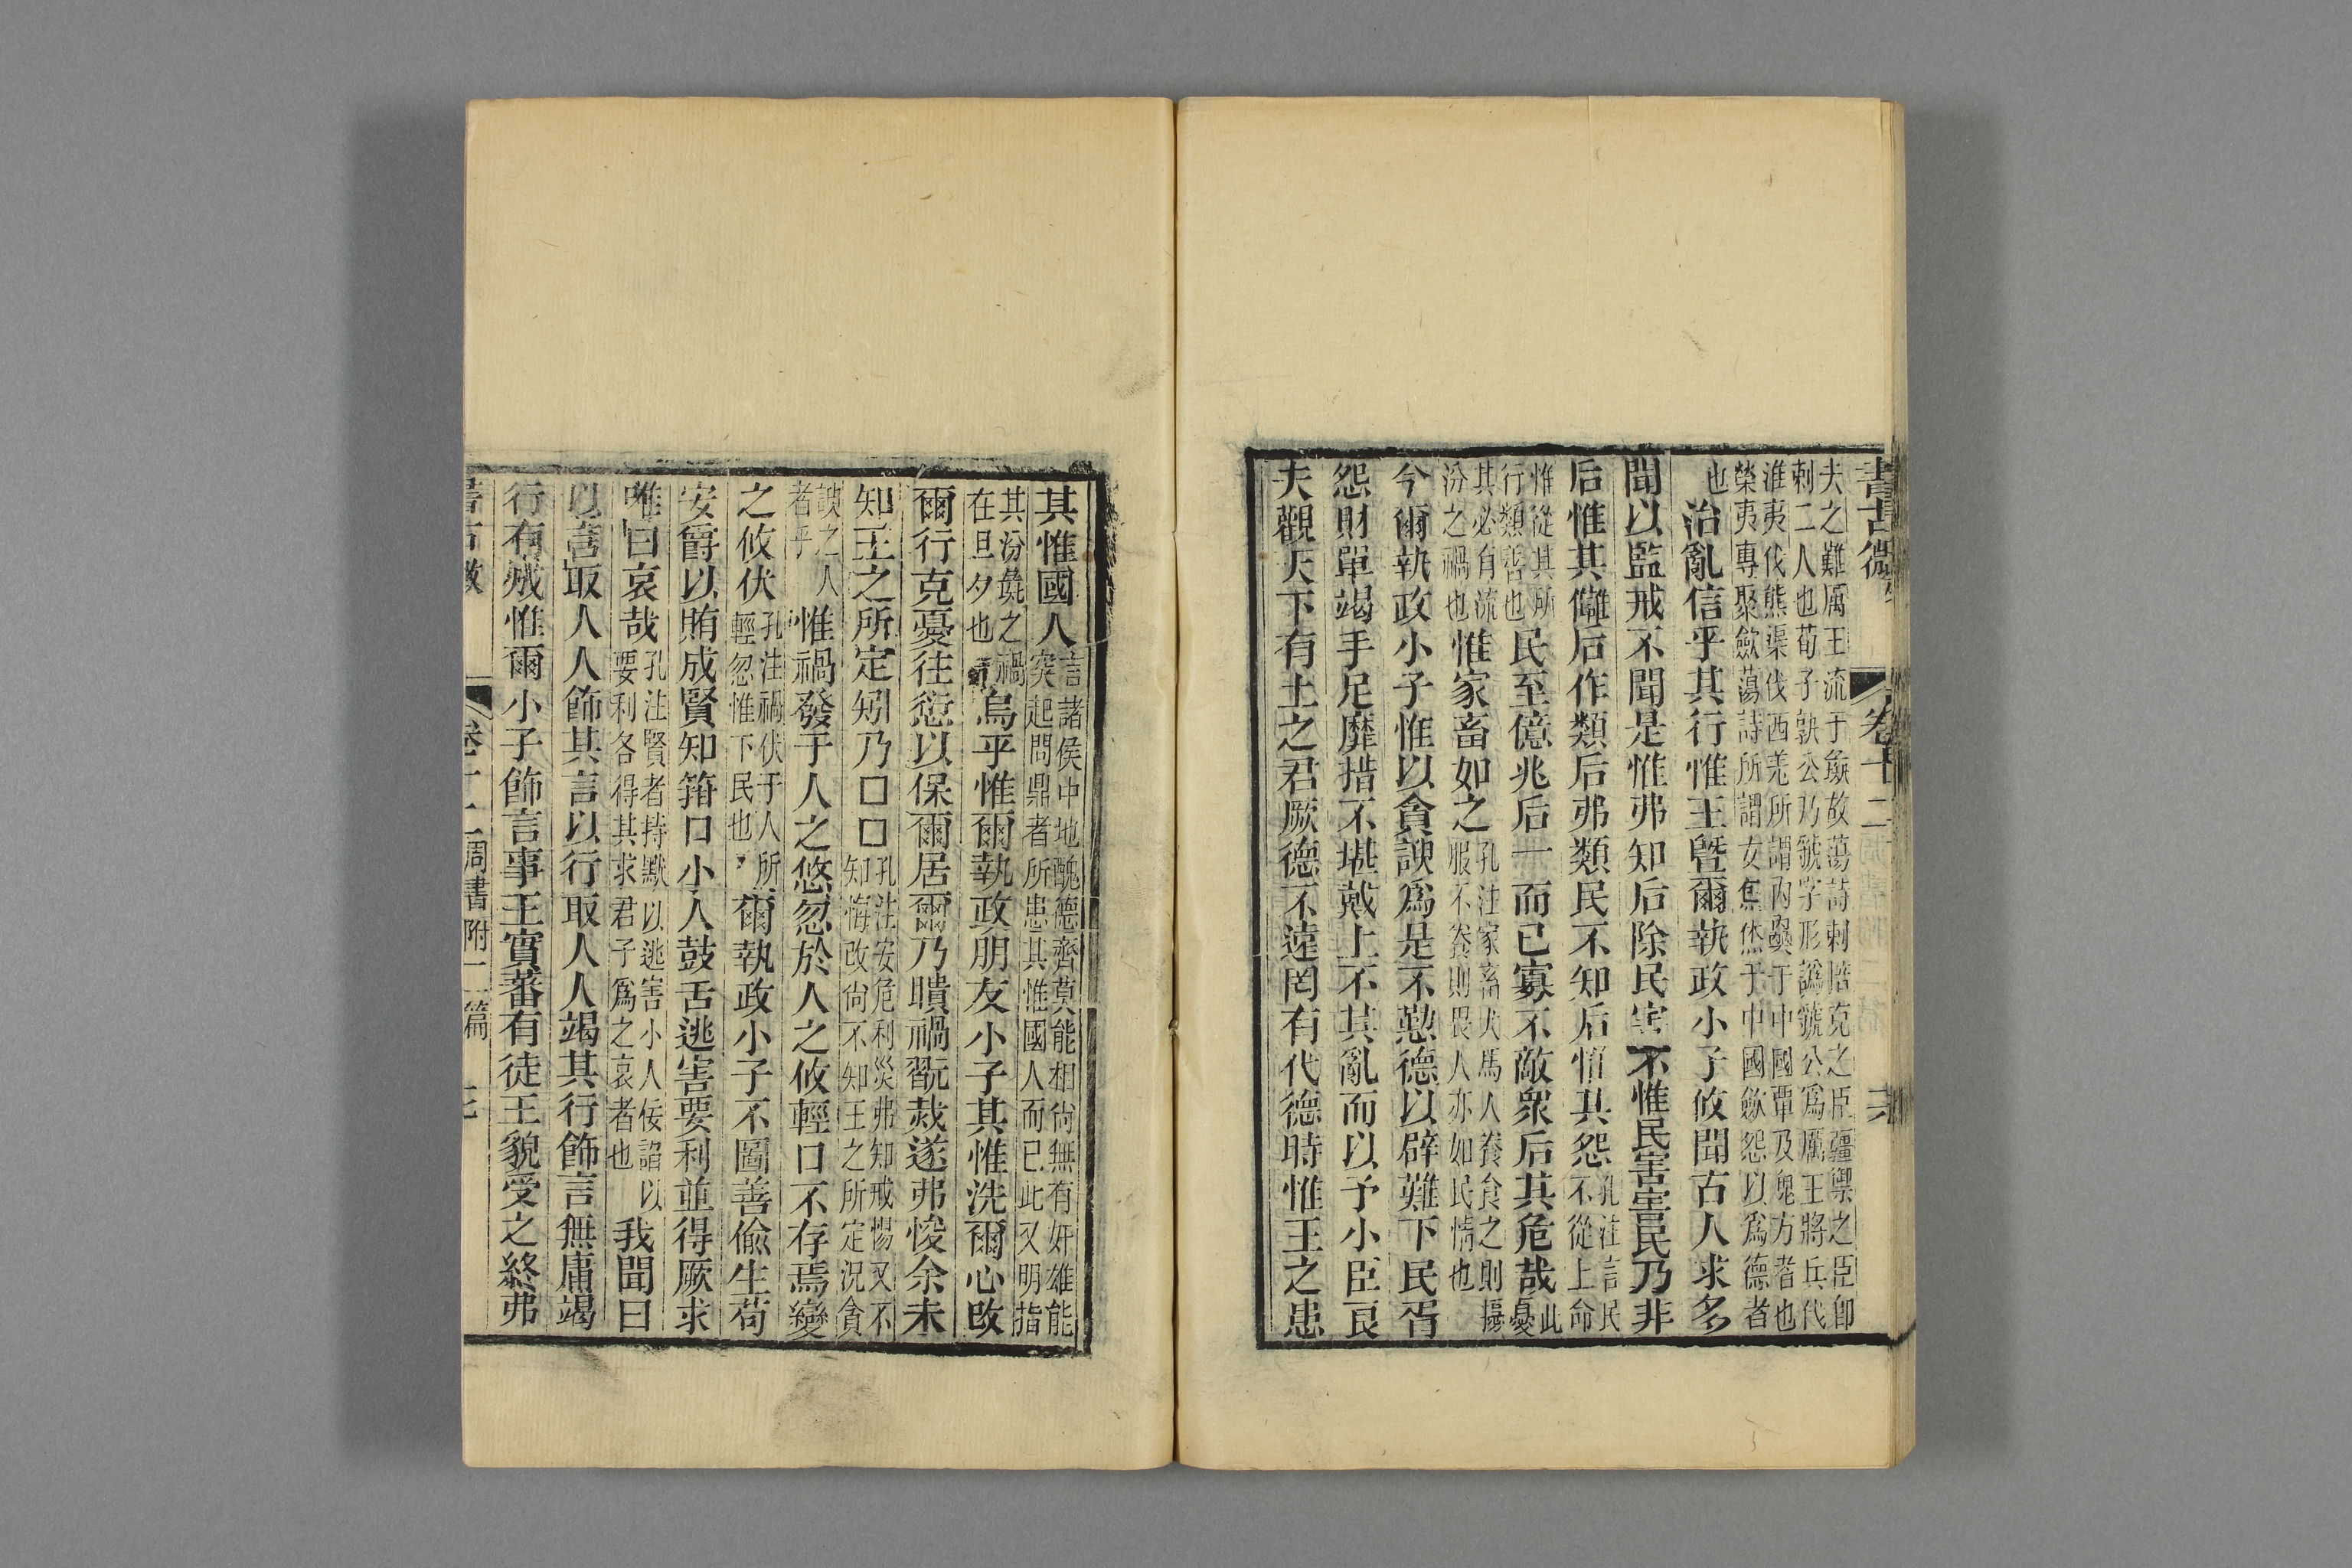 書古微 卷十二 六
夫之難厲王流于彘故蕩詩刺掊克之臣彊禦之臣卽
刺二人也荀子孰公乃虢字形譌虢公爲厲王將兵代
淮夷伐熊渠伐西羌所謂內奰于中國覃及鬼方者也
榮夷專聚斂蕩詩所謂女炰烋于中國斂怨以爲德者
也 治亂信乎其行惟王曁爾執政小子攸聞古人求多
聞以監戒不聞是惟弗知后除民害不惟民害害民乃非
后惟其讎后作類后弗類民不知后惟其怨孔注言民不從上命
惟從其所行類善也民至億兆后一而已寡不敵衆后其危哉此憂
其必有流汾之禍也惟家畜如之孔注家畜犬馬人養食之則擾服不養則畏人亦如民情也
今爾執政小子惟以貪諛爲是不懃德以辟難下民胥
怨財單竭手足靡措不堪戴上不其亂而以予小臣良
夫觀天下有土之君厥德不遠罔有代德時惟王之患
其惟國人言諸侯中地醜德齊莫能相尙無有奸雄能突起問鼎者所患其惟國人而已此又明指
其汾彘之禍在旦夕也烏乎惟爾執政朋友小子其惟洗爾心改
爾行克憂往愆以保爾居爾乃聵禍翫烖遂弗悛余未
知王之所定矧乃□□孔注安危利災弗知戒惕又不知悔改尙不知王之所定況貪
諛之人者乎惟禍發于人之悠忽於人之攸輕口不存焉變
之攸伏孔注禍伏于人所輕忽惟下民也爾執政小子不圖善偸生苟
安爵以賄成賢知箝口小人鼓舌逃害要利並得厥求
唯曰哀哉孔注賢者持默以逃害小人佞諂以要利各得其求君子爲之哀者也我聞曰
以言取人人飾其言以行取人人竭其行飾言無庸竭
行有成惟爾小子飾言事王實蕃有徒王貌受之終弗
書古微 卷十二 周書附二篇 七